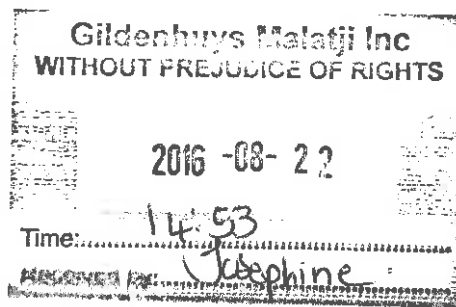 Gildenhuys Malatji Inc
WITHOUT PREJUDICE OF RIGHTS
2016 -08- 22
Time: 14:53
RECEIVED BY: Josephine